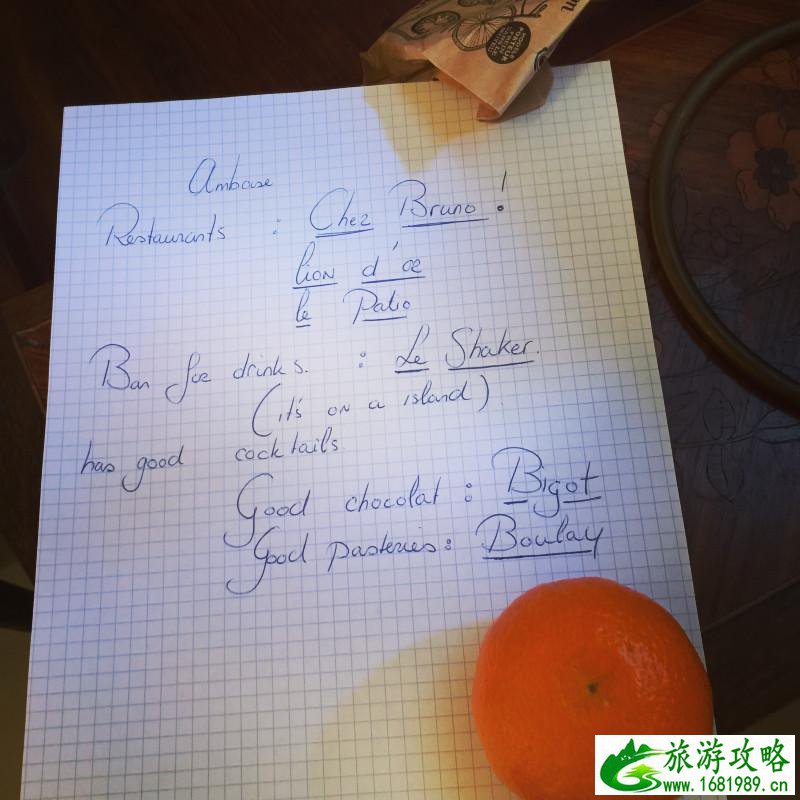 Amboise
Restaurants : Chez Bruno!
lion d'or
le Patio
Bar for drinks. : Le Shaker.
(it's on a island)
has good cocktails
Good chocolat : Bigot
Good pasteries: Boulay
旅游攻略
www.1681989.cn